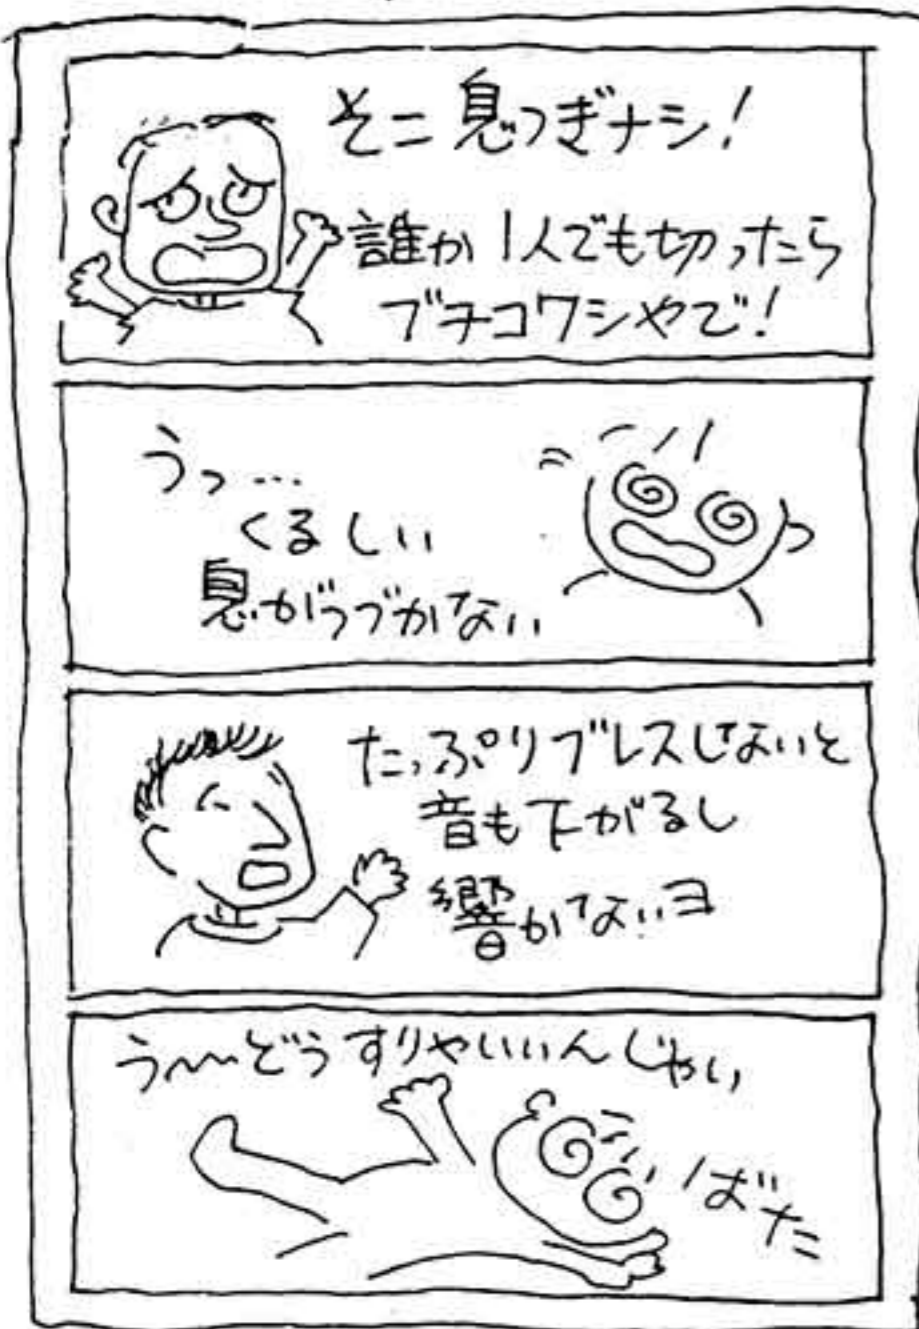 そこ息つぎナシ!
誰か1人でも切ったら
ブチコワシやで!
うっ…
くるしい
息がつづかない
たっぷりブレスしないと
音も下がるし
響かないヨ
う〜どうすりゃいいんじゃい
ばたっ